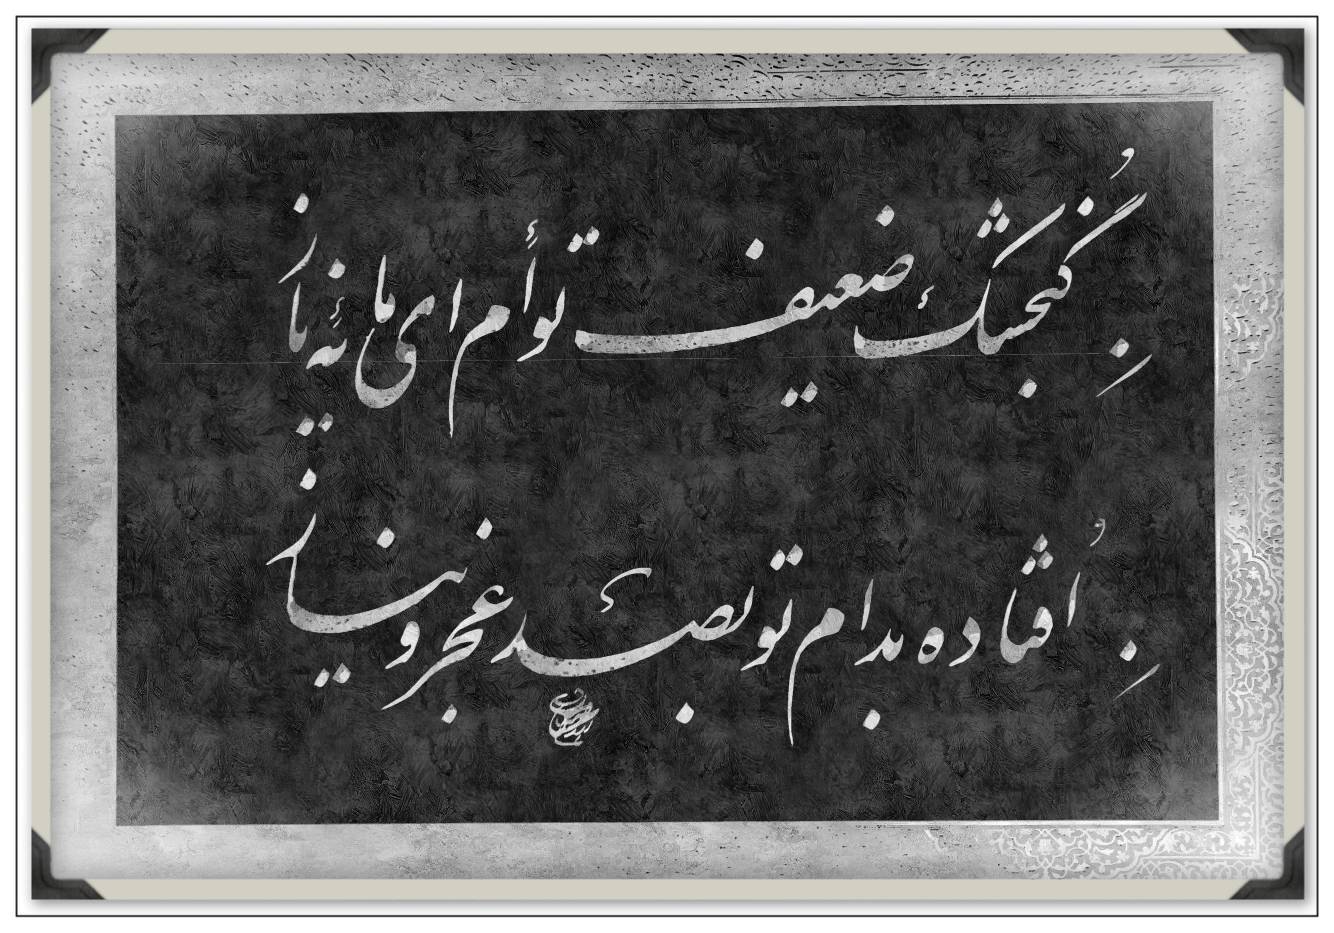 گنجشک ضعیف توأم ای مایهٔ ناز
افتاده بدام تو بصد عجز و نیاز